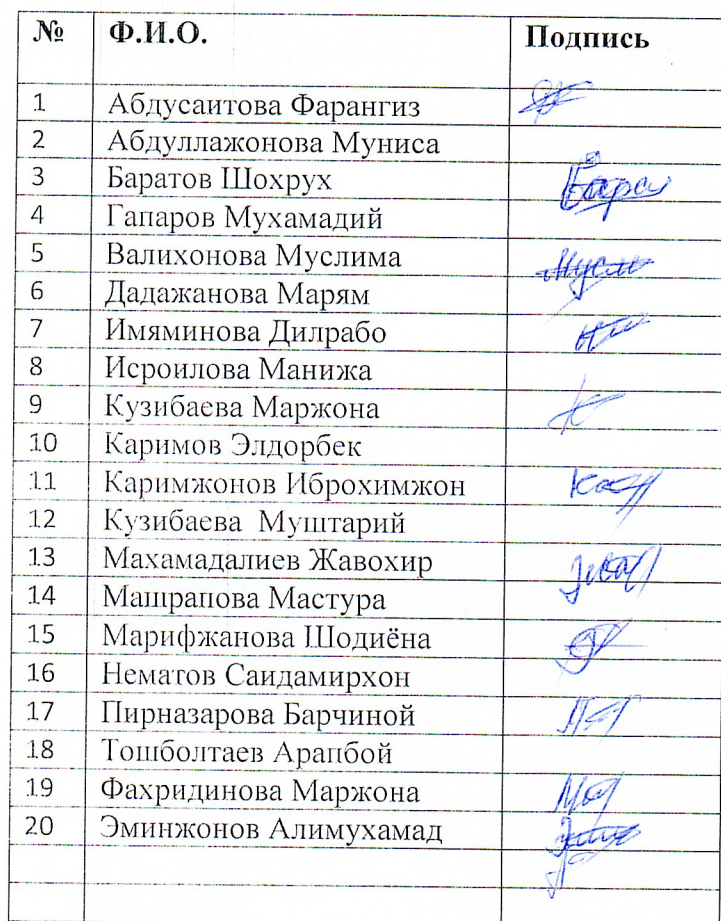 № Ф.И.О. Подпись
1 Абдусаитова Фарангиз
2 Абдуллажонова Муниса
3 Баратов Шохрух
4 Гапаров Мухамадий
5 Валихонова Муслима
6 Дадажанова Марям
7 Имяминова Дилрабо
8 Исроилова Манижа
9 Кузибаева Маржона
10 Каримов Элдорбек
11 Каримжонов Иброхимжон
12 Кузибаева Муштарий
13 Махамадалиев Жавохир
14 Машрапова Мастура
15 Марифжанова Шодиёна
16 Нематов Саидамирхон
17 Пирназарова Барчиной
18 Тошболтаев Арапбой
19 Фахридинова Маржона
20 Эминжонов Алимухамад